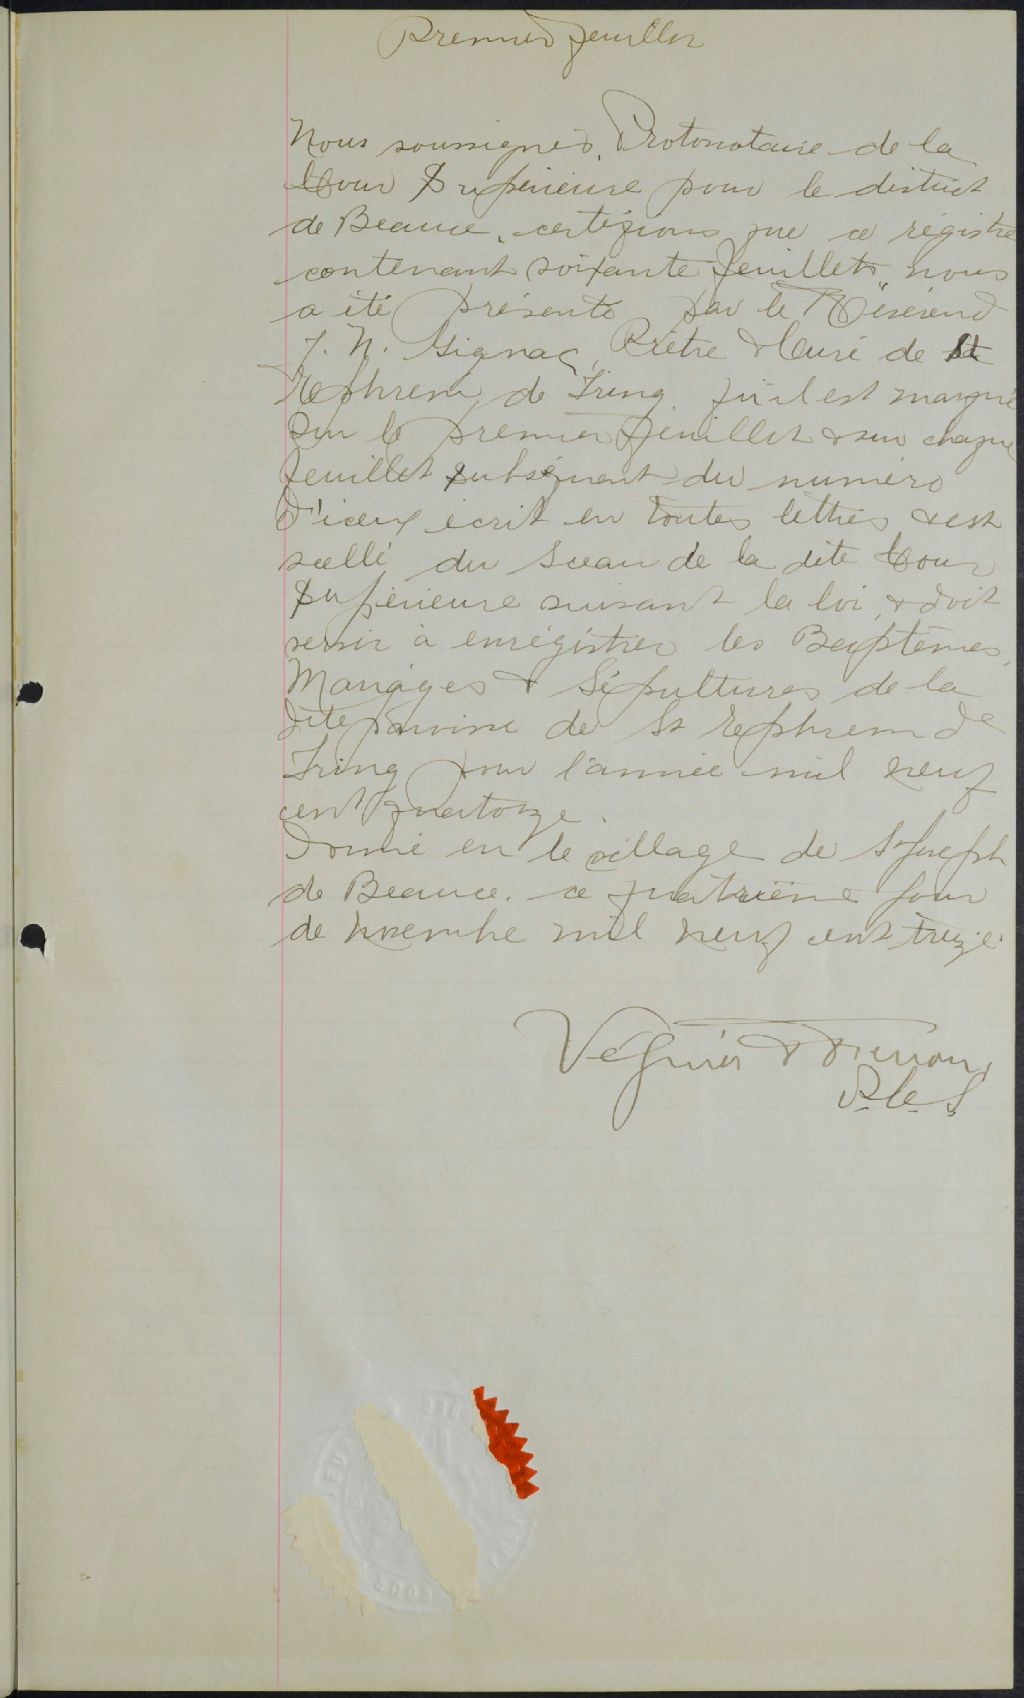 Premier feuillet
Nous soussignés, Protonotaire de la
Cour Supérieure pour le district
de Beauce, certifions que ce régistre
contenant soixante feuillets nous
a été présenté par le Révérend
J. N. Gignac, Prêtre & Curé de St
Ephrem de Tring qu'il est marqué
sur le premier feuillet & sur chaque
feuillet subséquent du numéro
d'iceux écrit en toutes lettres & est
scellé du Sceau de la dite Cour
Supérieure suivant la loi & doit
servir à enrégistrer les Baptêmes,
Mariages & Sépultures de la
dite paroisse de St Ephrem de
Tring pour l'année mil neuf
cent quatorze.
Donné en le village de St Joseph
de Beauce. ce quatrième jour
de novembre mil neuf cent treize.
P.C.S
COUR